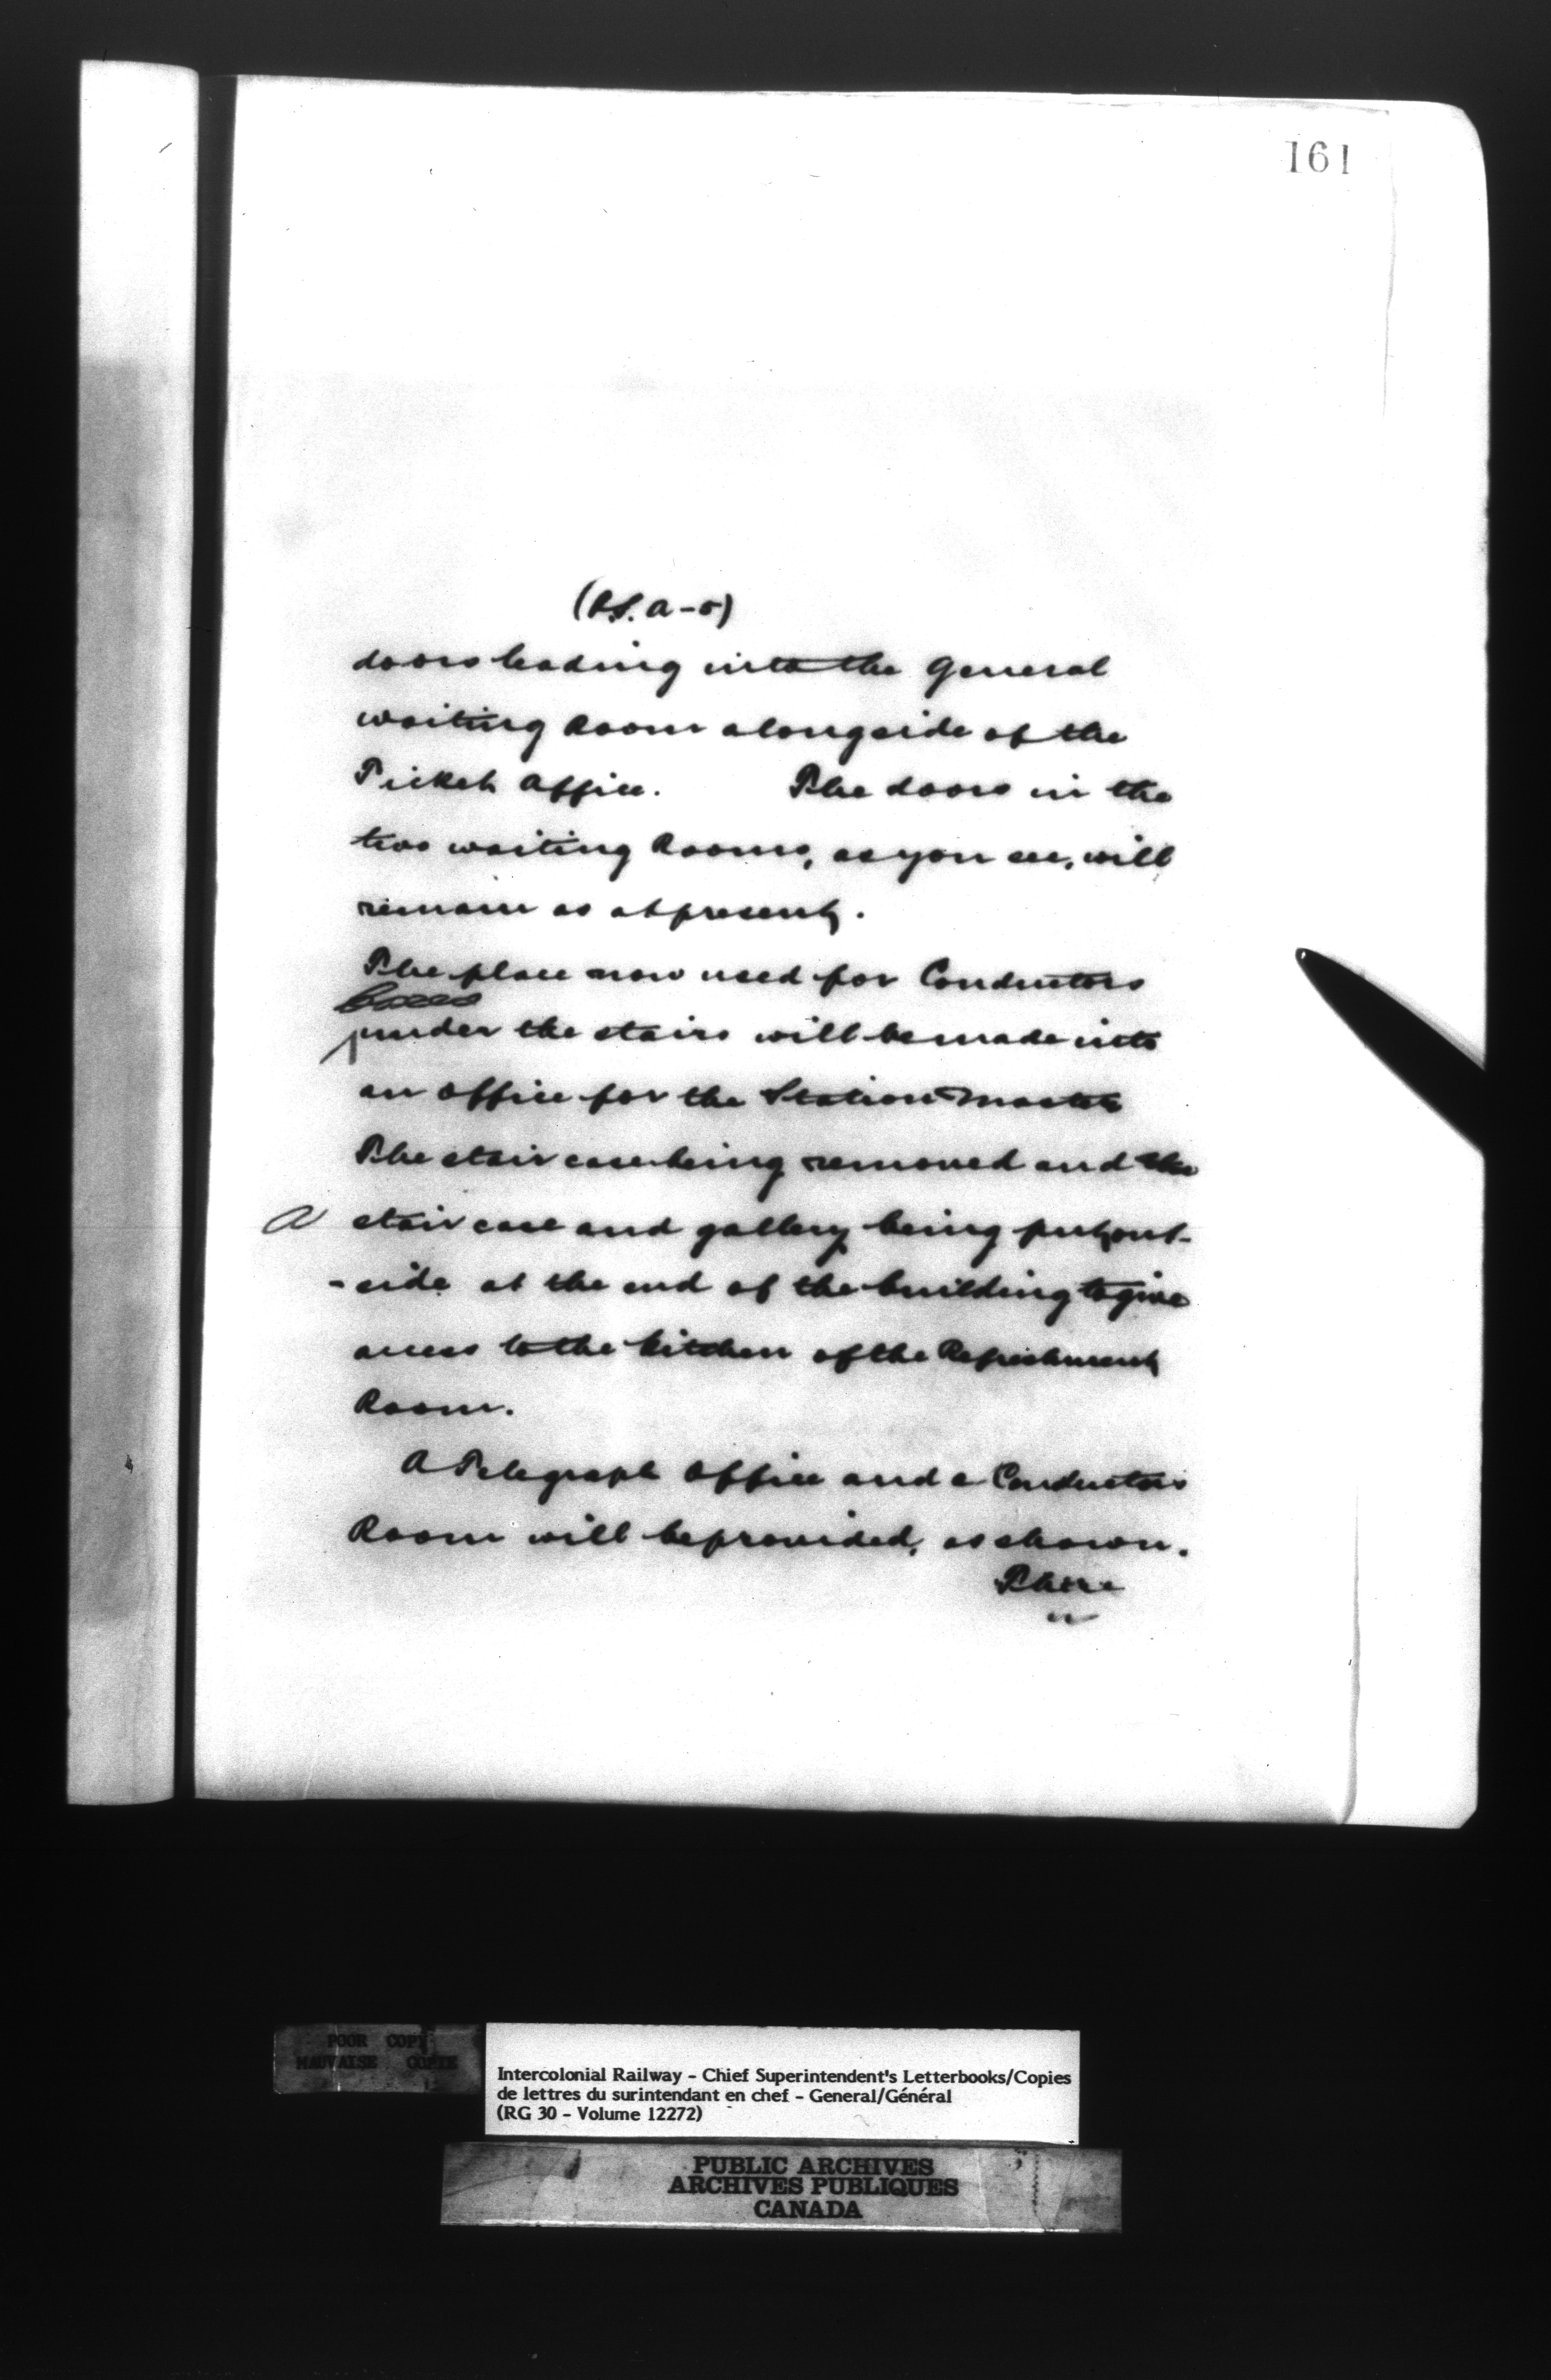 161
(P.S. A-5)
doors leading into the General
waiting Room alongside of the
Ticket Office. The doors in the
two waiting Rooms, as you see, will
remain as at present.
The place now used for Conductors
boxes
under the stairs will be made into
an office for the Station Master
The stair case being removed and the
a stair case and gallery being put out-
-side at the end of the building to give
access to the kitchen of the Refreshment
Room.
A Telegraph Office and a Conductors
Room will be provided, as shown.
There
POOR COPY
MAUVAISE COPIE
Intercolonial Railway - Chief Superintendent's Letterbooks/Copies
de lettres du surintendant en chef - General/Général
(RG 30 - Volume 12272)
PUBLIC ARCHIVES
ARCHIVES PUBLIQUES
CANADA